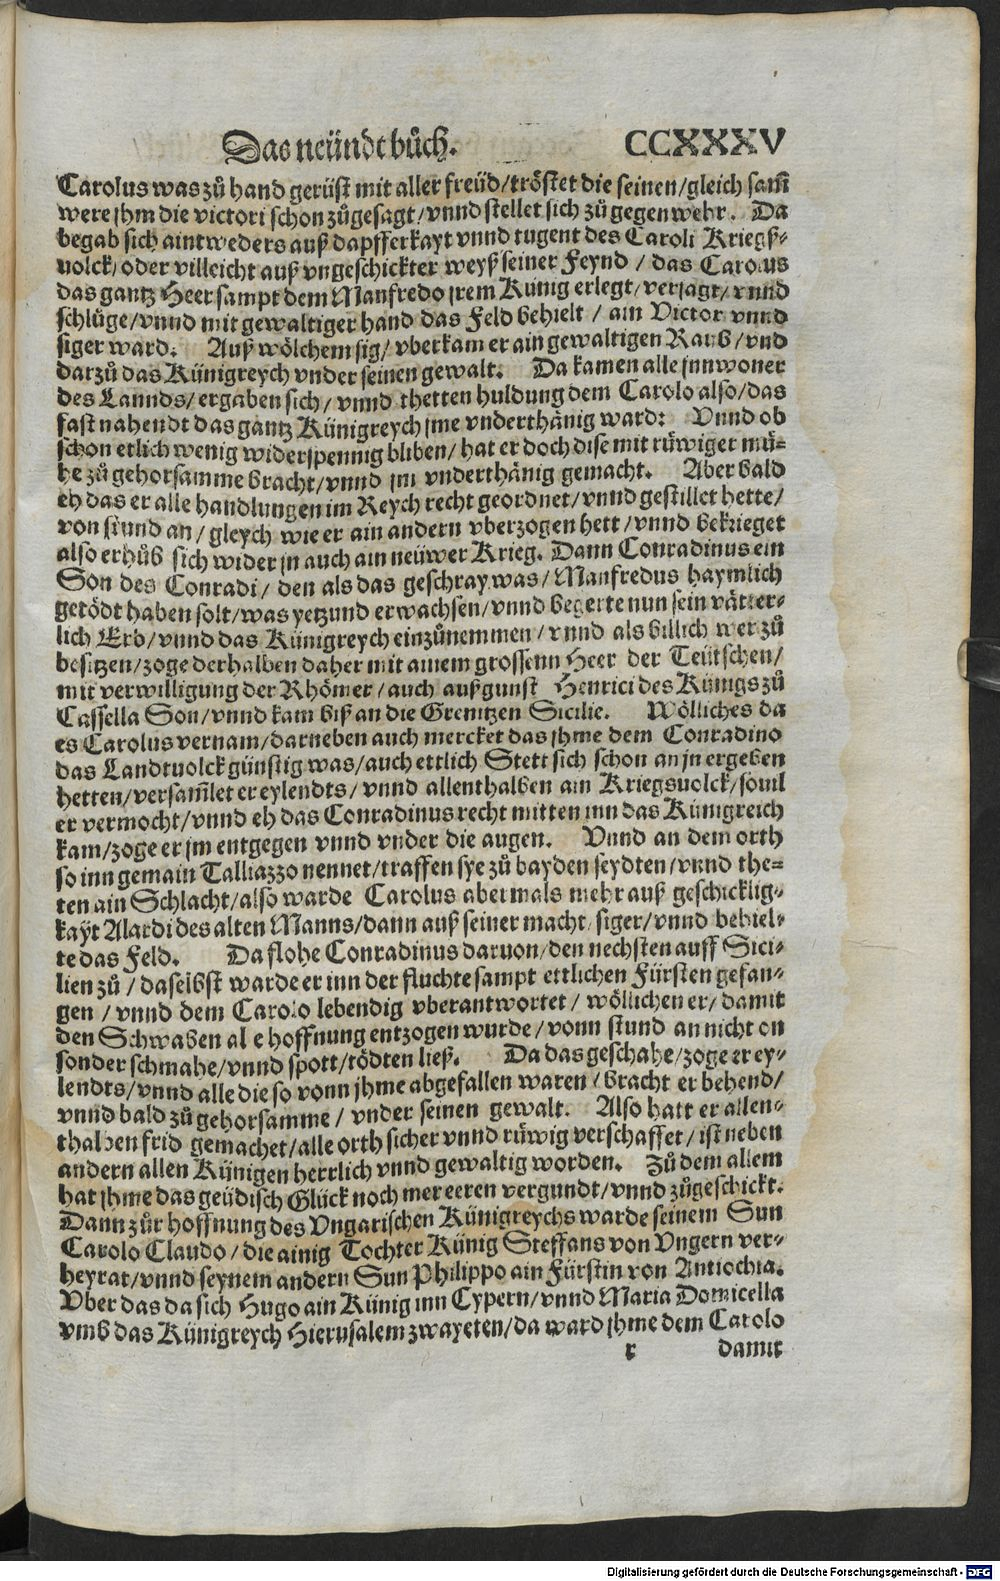 Das neündt bůch. CCXXXV
Carolus was zů hand gerüst mit aller freüd/tröstet die seinen/gleich sam̃
were jhm die victori schon zůgesagt/vnnd stellet sich zů gegenwehr. Da
begab sich aintweders auß dapfferkayt vnnd tugent des Caroli Kriegß-
uolck/oder villeicht auß vngeschickter weyß seiner Feynd/ das Carolus
das gantz Heer sampt dem Manfredo jrem Künig erlegt/verjagt/vnnd
schlüge/vnnd mit gewaltiger hand das Feld behielt/ ain Victor vnnd
siger ward. Auß wölchem sig/ vberkam er ain gewaltigen Raub/vnd
darzů das Künigreych vnder seinen gewalt. Da kamen alle jnnwoner
des Lannds/ergaben sich/ vnnd thetten huldung dem Carolo also/das
fast nahendt das gantz Künigreych jme vnderthänig ward: Vnnd ob
schon etlich wenig widerspennig bliben/ hat er doch dise mit rüwiger mü-
he zů gehorsamme bracht/vnnd jm vnderthänig gemacht. Aber bald
eh das er alle handlungen im Reych recht geordnet/vnnd gestillet hette/
von stund an/ gleych wie er ain andern vberzogen hett/vnnd bekrieget
also erhůb sich wider jn auch ain neüwer Krieg. Dann Conradinus ein
Son des Conradi/ den als das geschray was/ Manfredus haymlich
getödt haben solt/was yetzund erwachsen/vnnd begerte nun sein vätter-
lich Erb/vnnd das Künigreych einzůnemmen/vnnd als billich wer zů
besitzen/zoge derhalben daher mit ainem grossenn Heer der Teütschen/
mit verwilligung der Rhömer/auch auß gunst Henrici des Künigs zů
Cassella Son/vnnd kam biß an die Grenitzen Sicilie. Wölliches da
es Carolus vernam/darneben auch mercket das jhme dem Conradino
das Landtuolck günstig was/auch ettlich Stett sich schon an jn ergeben
hetten/versam̃let er eylendts/ vnnd allenthalben ain Kriegsuolck/souil
er vermocht/vnnd eh das Conradinus recht mitten inn das Künigreich
kam/zoge er jm entgegen vnnd vnder die augen. Vnnd an dem orth
so inn gemain Talliazzo nennet/traffen sye zů bayden seydten/vnnd the-
ten ain Schlacht/also warde Carolus abermals mehr auß geschicklig-
kayt Alardi des alten Manns/dann auß seiner macht/siger/vnnd behiel-
te das Feld. Da flohe Conradinus daruon/den nechsten auff Sici-
lien zů/ daselbst warde er inn der fluchte sampt ettlichen Fürsten gefan-
gen/ vnnd dem Carolo lebendig vberantwortet/ wöllichen er/damit
den Schwaben alle hoffnung entzogen wurde/vonn stund an nicht on
sonder schmahe/vnnd spott/tödten ließ. Da das geschahe/zoge er ey-
lendts/vnnd alle die so vonn jhme abgefallen waren/bracht er behend/
vnnd bald zů gehorsamme/ vnder seinen gewalt. Also hatt er allen-
thalben frid gemachet/alle orth sicher vnnd rüwig verschaffet/ist neben
andern allen Künigen herrlich vnnd gewaltig worden. Zů dem allem
hat jhme das geüdisch Glück noch mer eeren vergundt/vnnd zůgeschickt.
Dann zůr hoffnung des Vngarischen Künigreychs warde seinem Sun
Carolo Claudo/die ainig Tochter Künig Steffans von Vngern ver-
heyrat/vnnd seynem andern Sun Philippo ain Fürstin von Antiochia.
Vber das da sich Hugo ain Künig inn Cypern/vnnd Maria Domicella
vmb das Künigreych Hierusalem zwayeten/da ward jhme dem Carolo
r damit
Digitalisierung gefördert durch die Deutsche Forschungsgemeinschaft - DFG